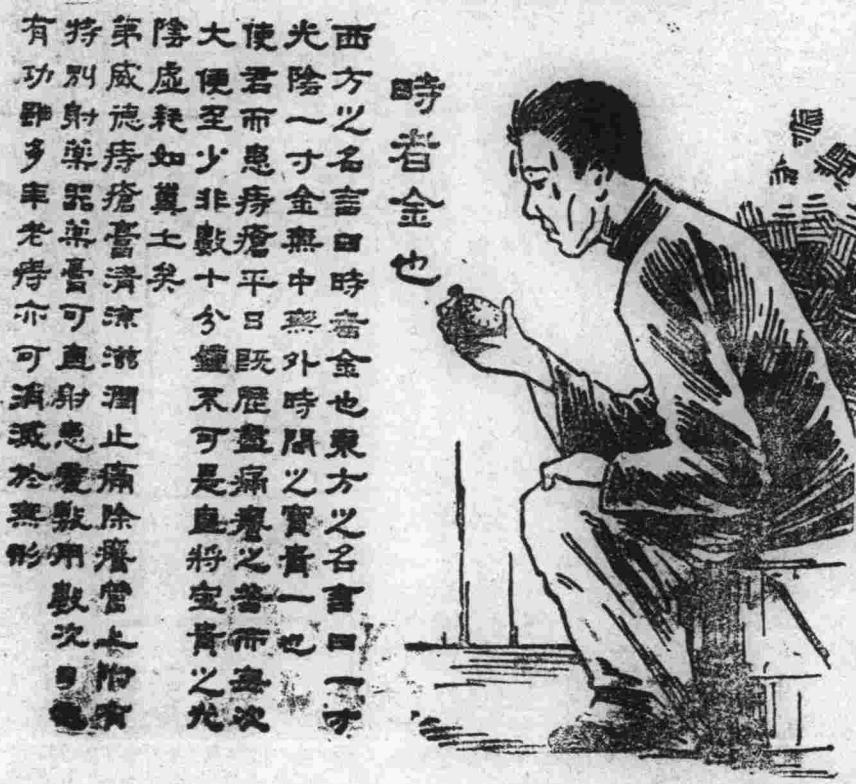 時者金也
西方之名言曰時者金也東方之名言曰一寸
光陰一寸金無中無外時間之寶貴一也
使君而患痔瘡平日既歷盡痛癢之苦而每次
大便至少非數十分鐘不可是直將宝貴之光
陰虛耗如糞土矣
第威德痔瘡膏清涼滋潤止痛除癢管上附有
特別射藥器藥膏可直射患處敷用數次
有功雖多年老痔亦可消滅於無形